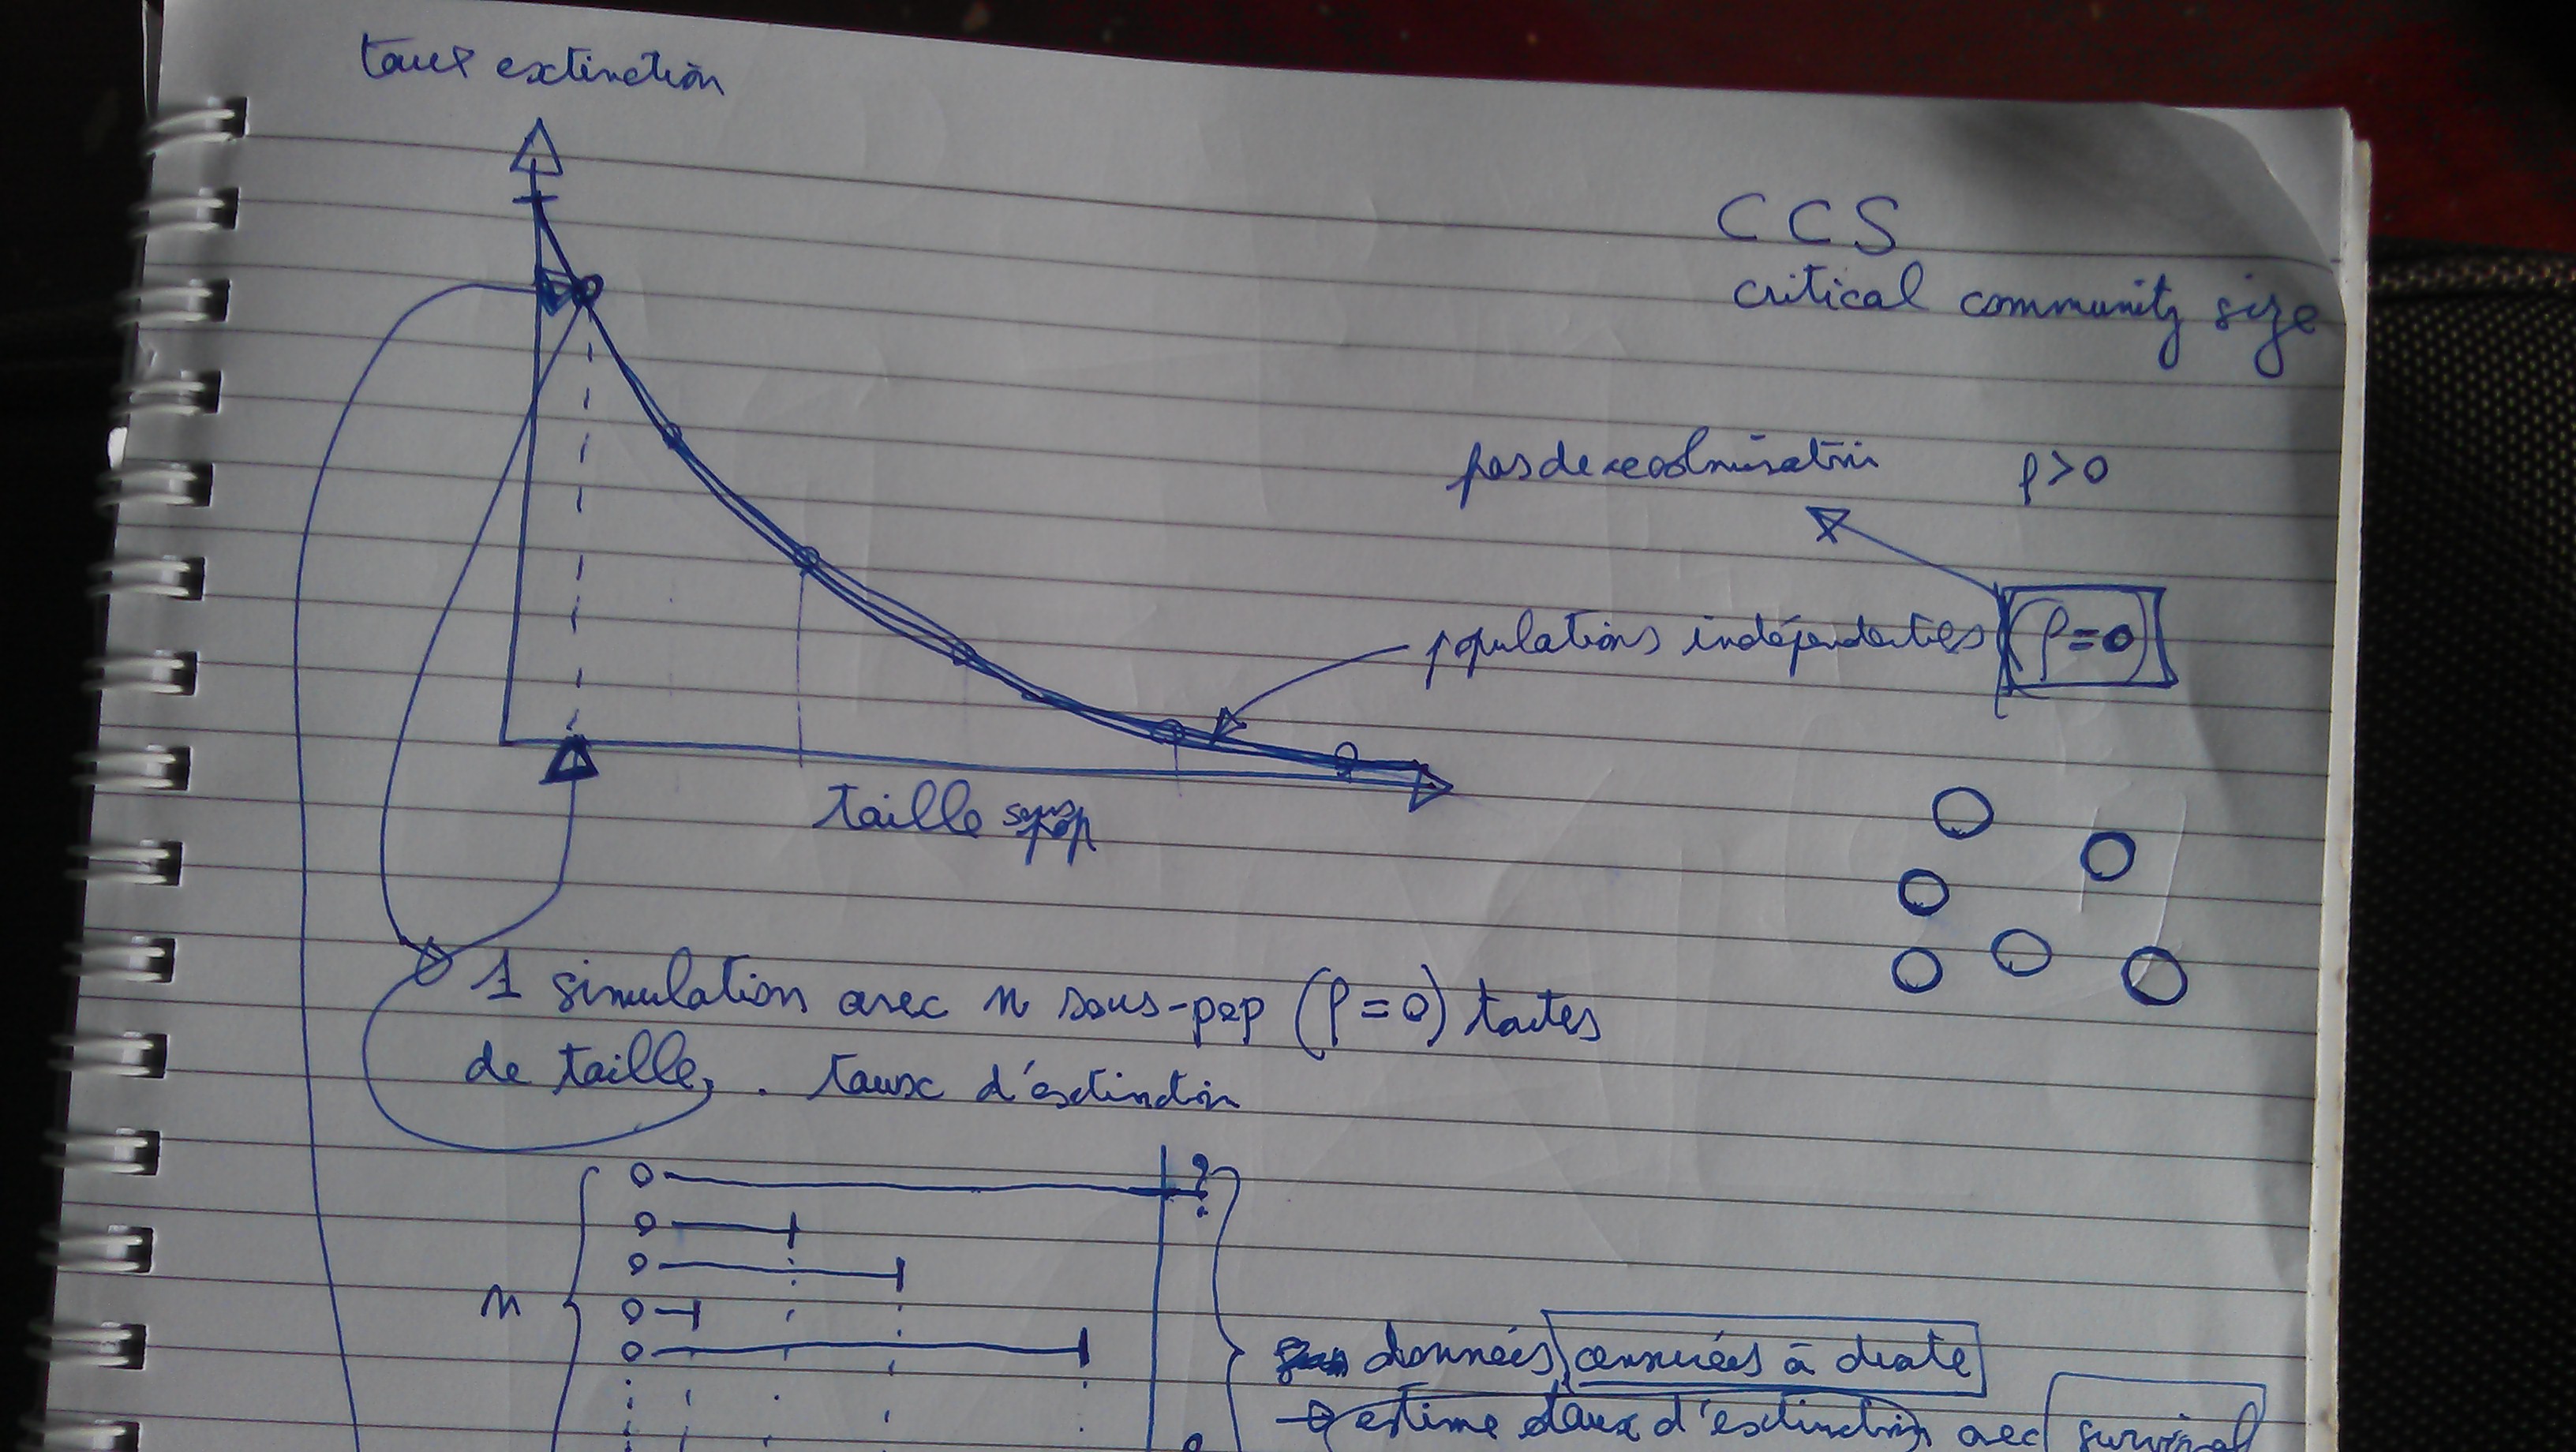 taux extinction
CCS
critical community size
pas de recolonisation ρ>0
populations indépendantes (ρ=0)
taille sous pop
1 simulation avec n sous-pop (ρ=0) toutes
de taille, . taux d'extinction
?
n
données censurées à droite
→ estime taux d'extinction avec survival